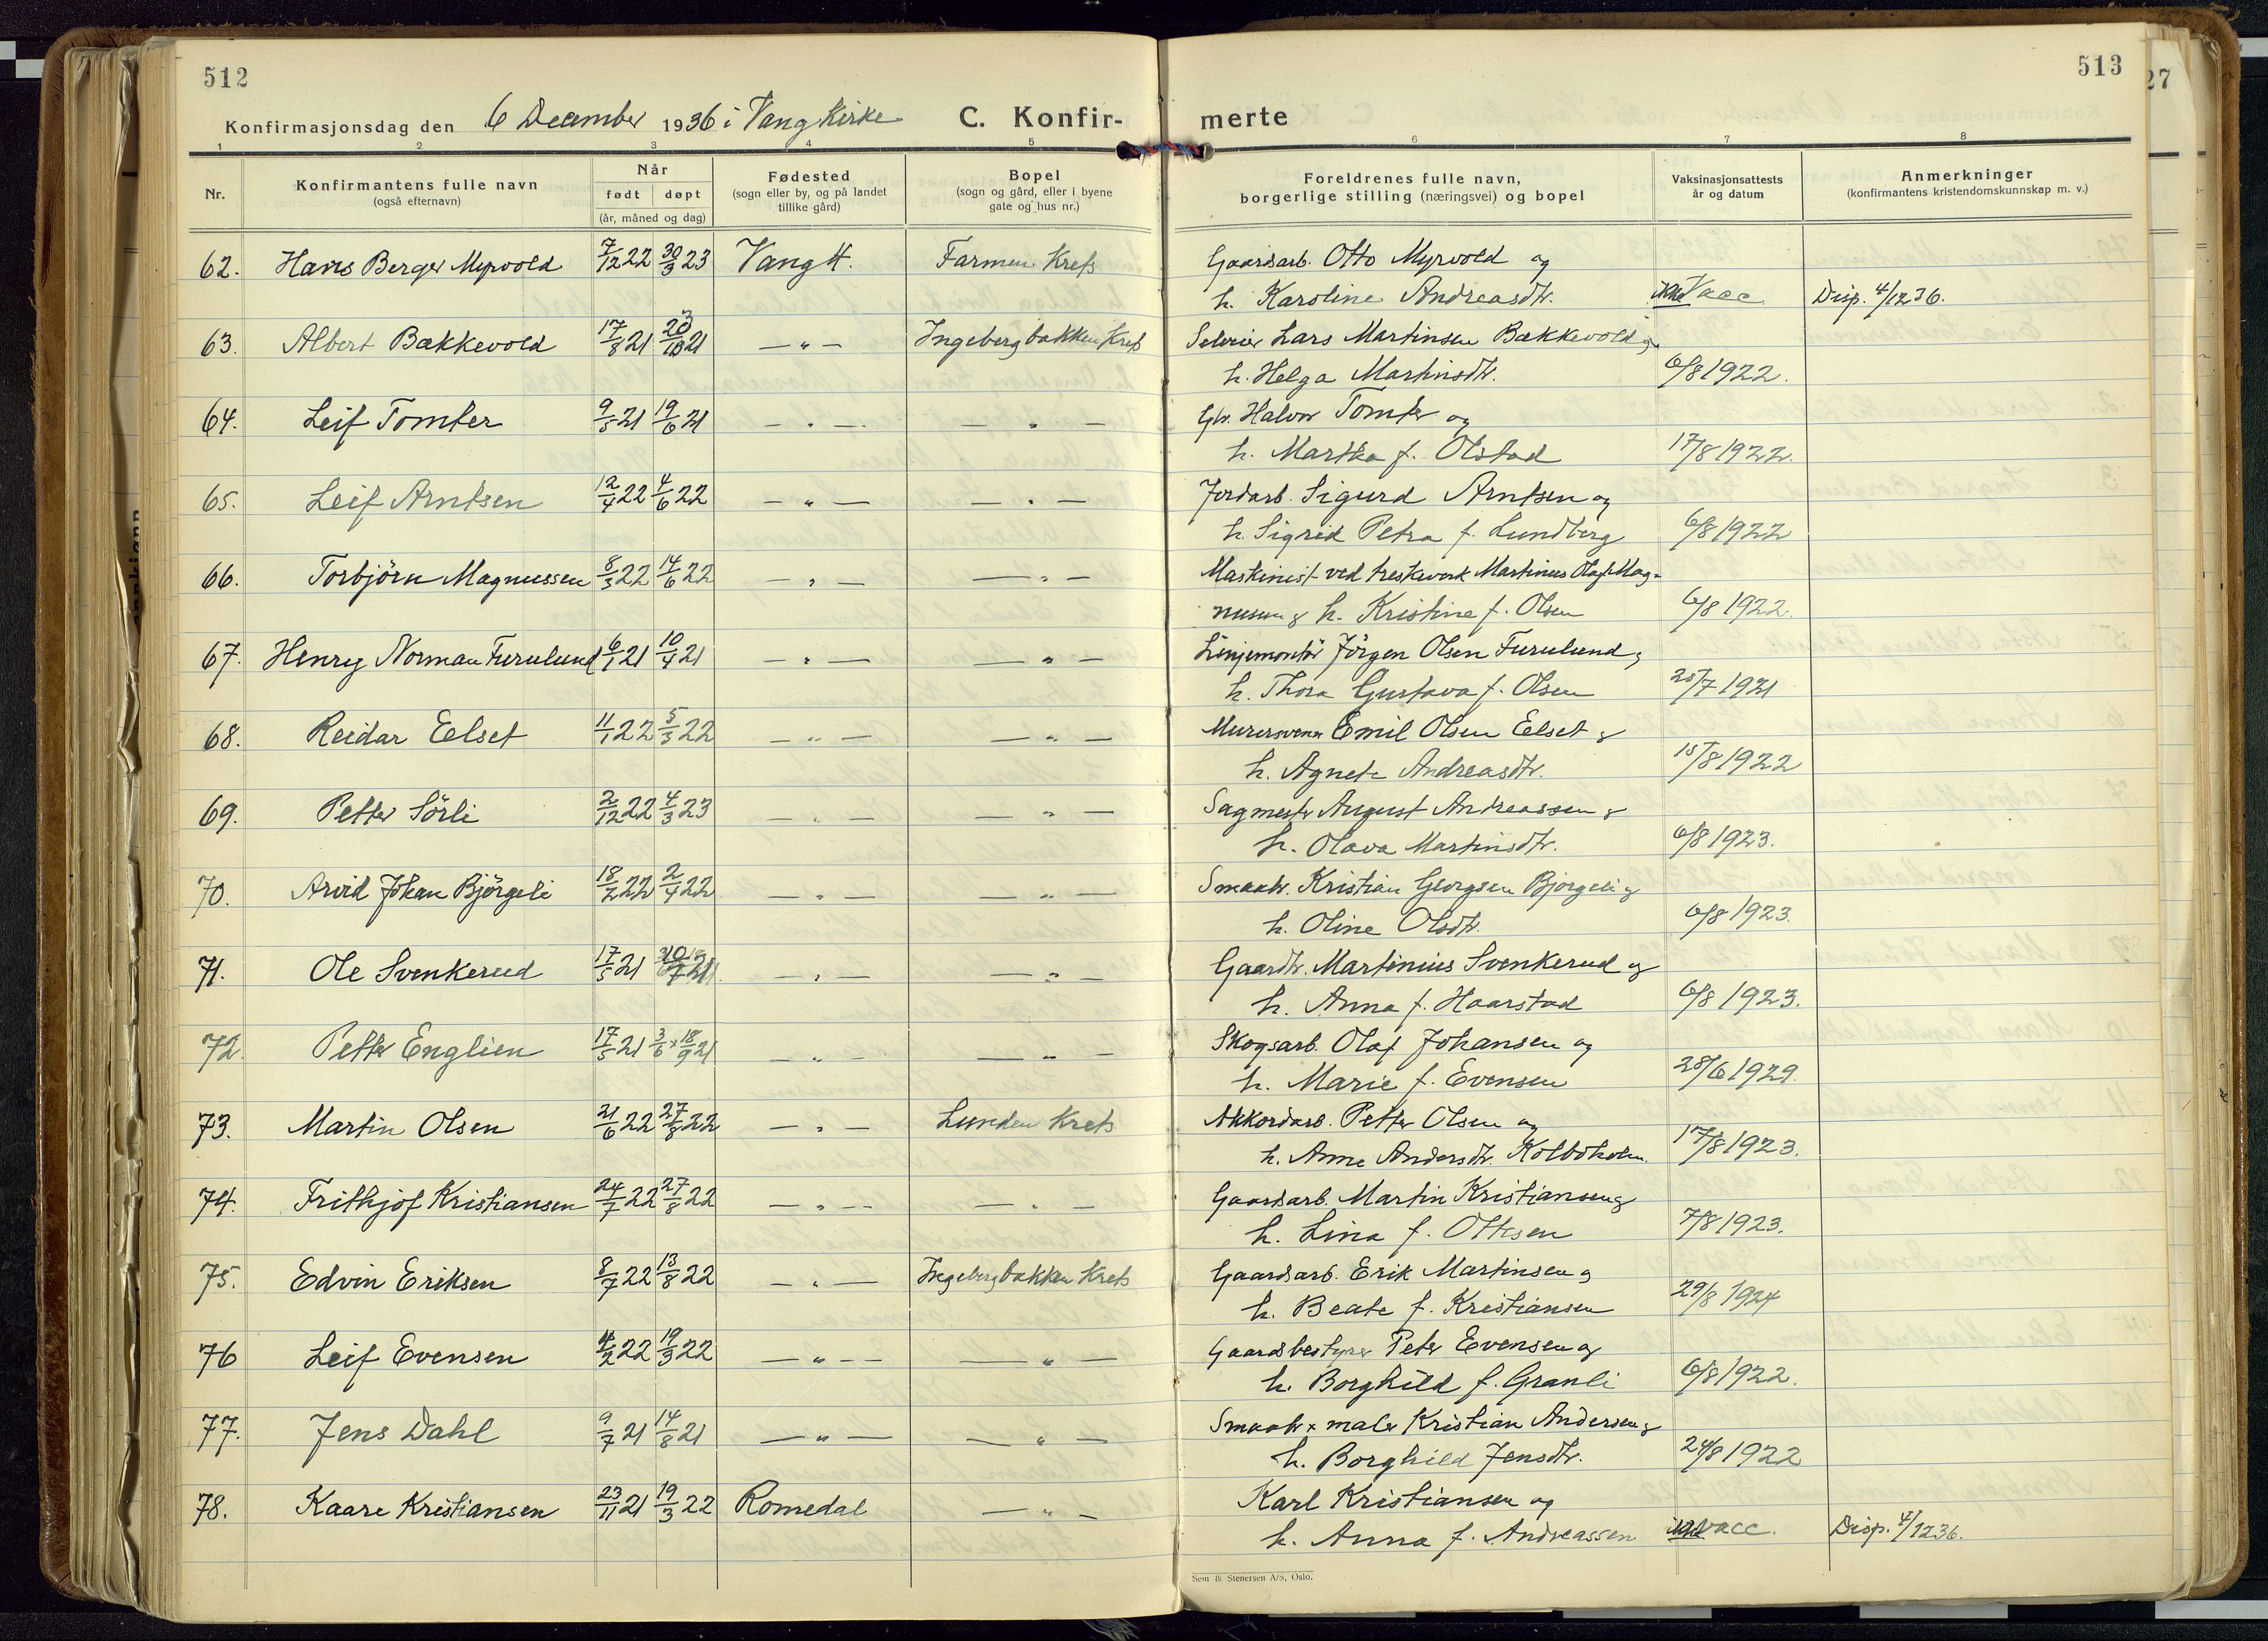 512
513
27
Konfirmasjonsdag den 6 December 1936 i Vang Kirke C. Konfir- merte
1 2 3 4 5 6 7 8
Nr. Konfirmantens fulle navn (også efternavn) Når født døpt (år, måned og dag) Fødested (sogn eller by, og på landet tillike gård) Bopel (sogn og gård, eller i byene gate og hus nr.) Foreldrenes fulle navn, borgerlige stilling (næringsvei) og bopel Vaksinasjonsattests år og datum Anmerkninger (konfirmantens kristendomskunnskap m. v.)
62. Hans Berger Myrvold 7/12 22 30/3 23 Vang H. Farmen Krets Gaardsarb. Otto Myrvold og
h. Karoline Andreasdtr. ikke Vacc. Disp. 4/12 36.
63. Albert Bækkevold 17/8 21 21 — " — Ingebergbakken Krets Lars Martinsen Bækkevold og
h. Helga Martinsdtr. 6/8 1922.
64. Leif Tomter 9/5 21 19/6 21 — " — — " — Gbr. Halvor Tomter og
h. Martha f. Olstad 17/8 1922.
65. Leif Arntsen 12/4 22 4/6 22 — " — — " — Jordarb. Sigurd Arntsen og
h. Sigrid Petra f. Lundberg 6/8 1922
66. Torbjörn Magnussen 8/3 22 14/6 22 — " — — " — Maskinist ved treskeverk Martinius Olaf Mag-
nussen & h. Kristine f. Olsen 6/8 1922.
67. Henry Norman Furulund 6/1 21 10/4 21 — " — — " — Linjemontör Jörgen Olsen Furulund &
h. Thora Gustava f. Olsen 25/7 1921
68. Reidar Eelset 11/1 22 5/3 22 — " — — " — Murersvenn Emil Olsen Eelset &
h. Agnete Andreasdtr. 15/8 1922
69. Petter Sörli 2/12 22 4/3 23 — " — — " — Sagmester August Andreassen &
h. Olava Martinsdtr. 6/8 1923.
70. Arvid Johan Björgeli 18/2 22 2/4 22 — " — — " — Smaabr. Kristian Georgsen Bjorgeli og
h. Oline Olsdtr. 6/8 1923.
71. Ole Svenkerud 17/5 21 10/7 21 — " — — " — Gaardbr. Martinius Svenkerud og
h. Anna f. Haarstad 6/8 1923.
72. Petter Englien 17/5 21 3/6 x 18/9 21 — " — — " — Skogsarb. Olaf Johansen og
h. Marie f. Evensen 28/6 1929.
73. Martin Olsen 21/6 22 27/8 22 — " — Lunden Krets Akkordarb. Petter Olsen og
h. Anne Andersdtr. Kolboholm. 17/8 1923.
74. Frithjof Kristiansen 24/7 22 27/8 22 — " — — " — Gaardsarb. Martin Kristiansen og
h. Lina f. Ottesen 7/8 1923.
75. Edvin Eriksen 8/7 22 13/8 22 — " — Ingebergbakken Krets Gaardsarb. Erik Martinsen og
h. Beate f. Kristiansen 29/8 1924
76 Leif Evensen 4/2 22 19/3 22 — " — — " — Gaardsbestyrer Peter Evensen og
h. Borghild f. Granli 6/8 1922.
77. Jens Dahl 9/7 21 14/8 21 — " — — " — Smaabr x maler Kristian Andersen &
h. Borghild Jensdtr. 24/8 1922
78. Kaare Kristiansen 23/11 21 19/3 22 Romedal — " — Karl Kristiansen og
h. Anna f. Andreassen ikke vacc. Disp. 4/12 36.
Sem & Stenersen A/S, Oslo.